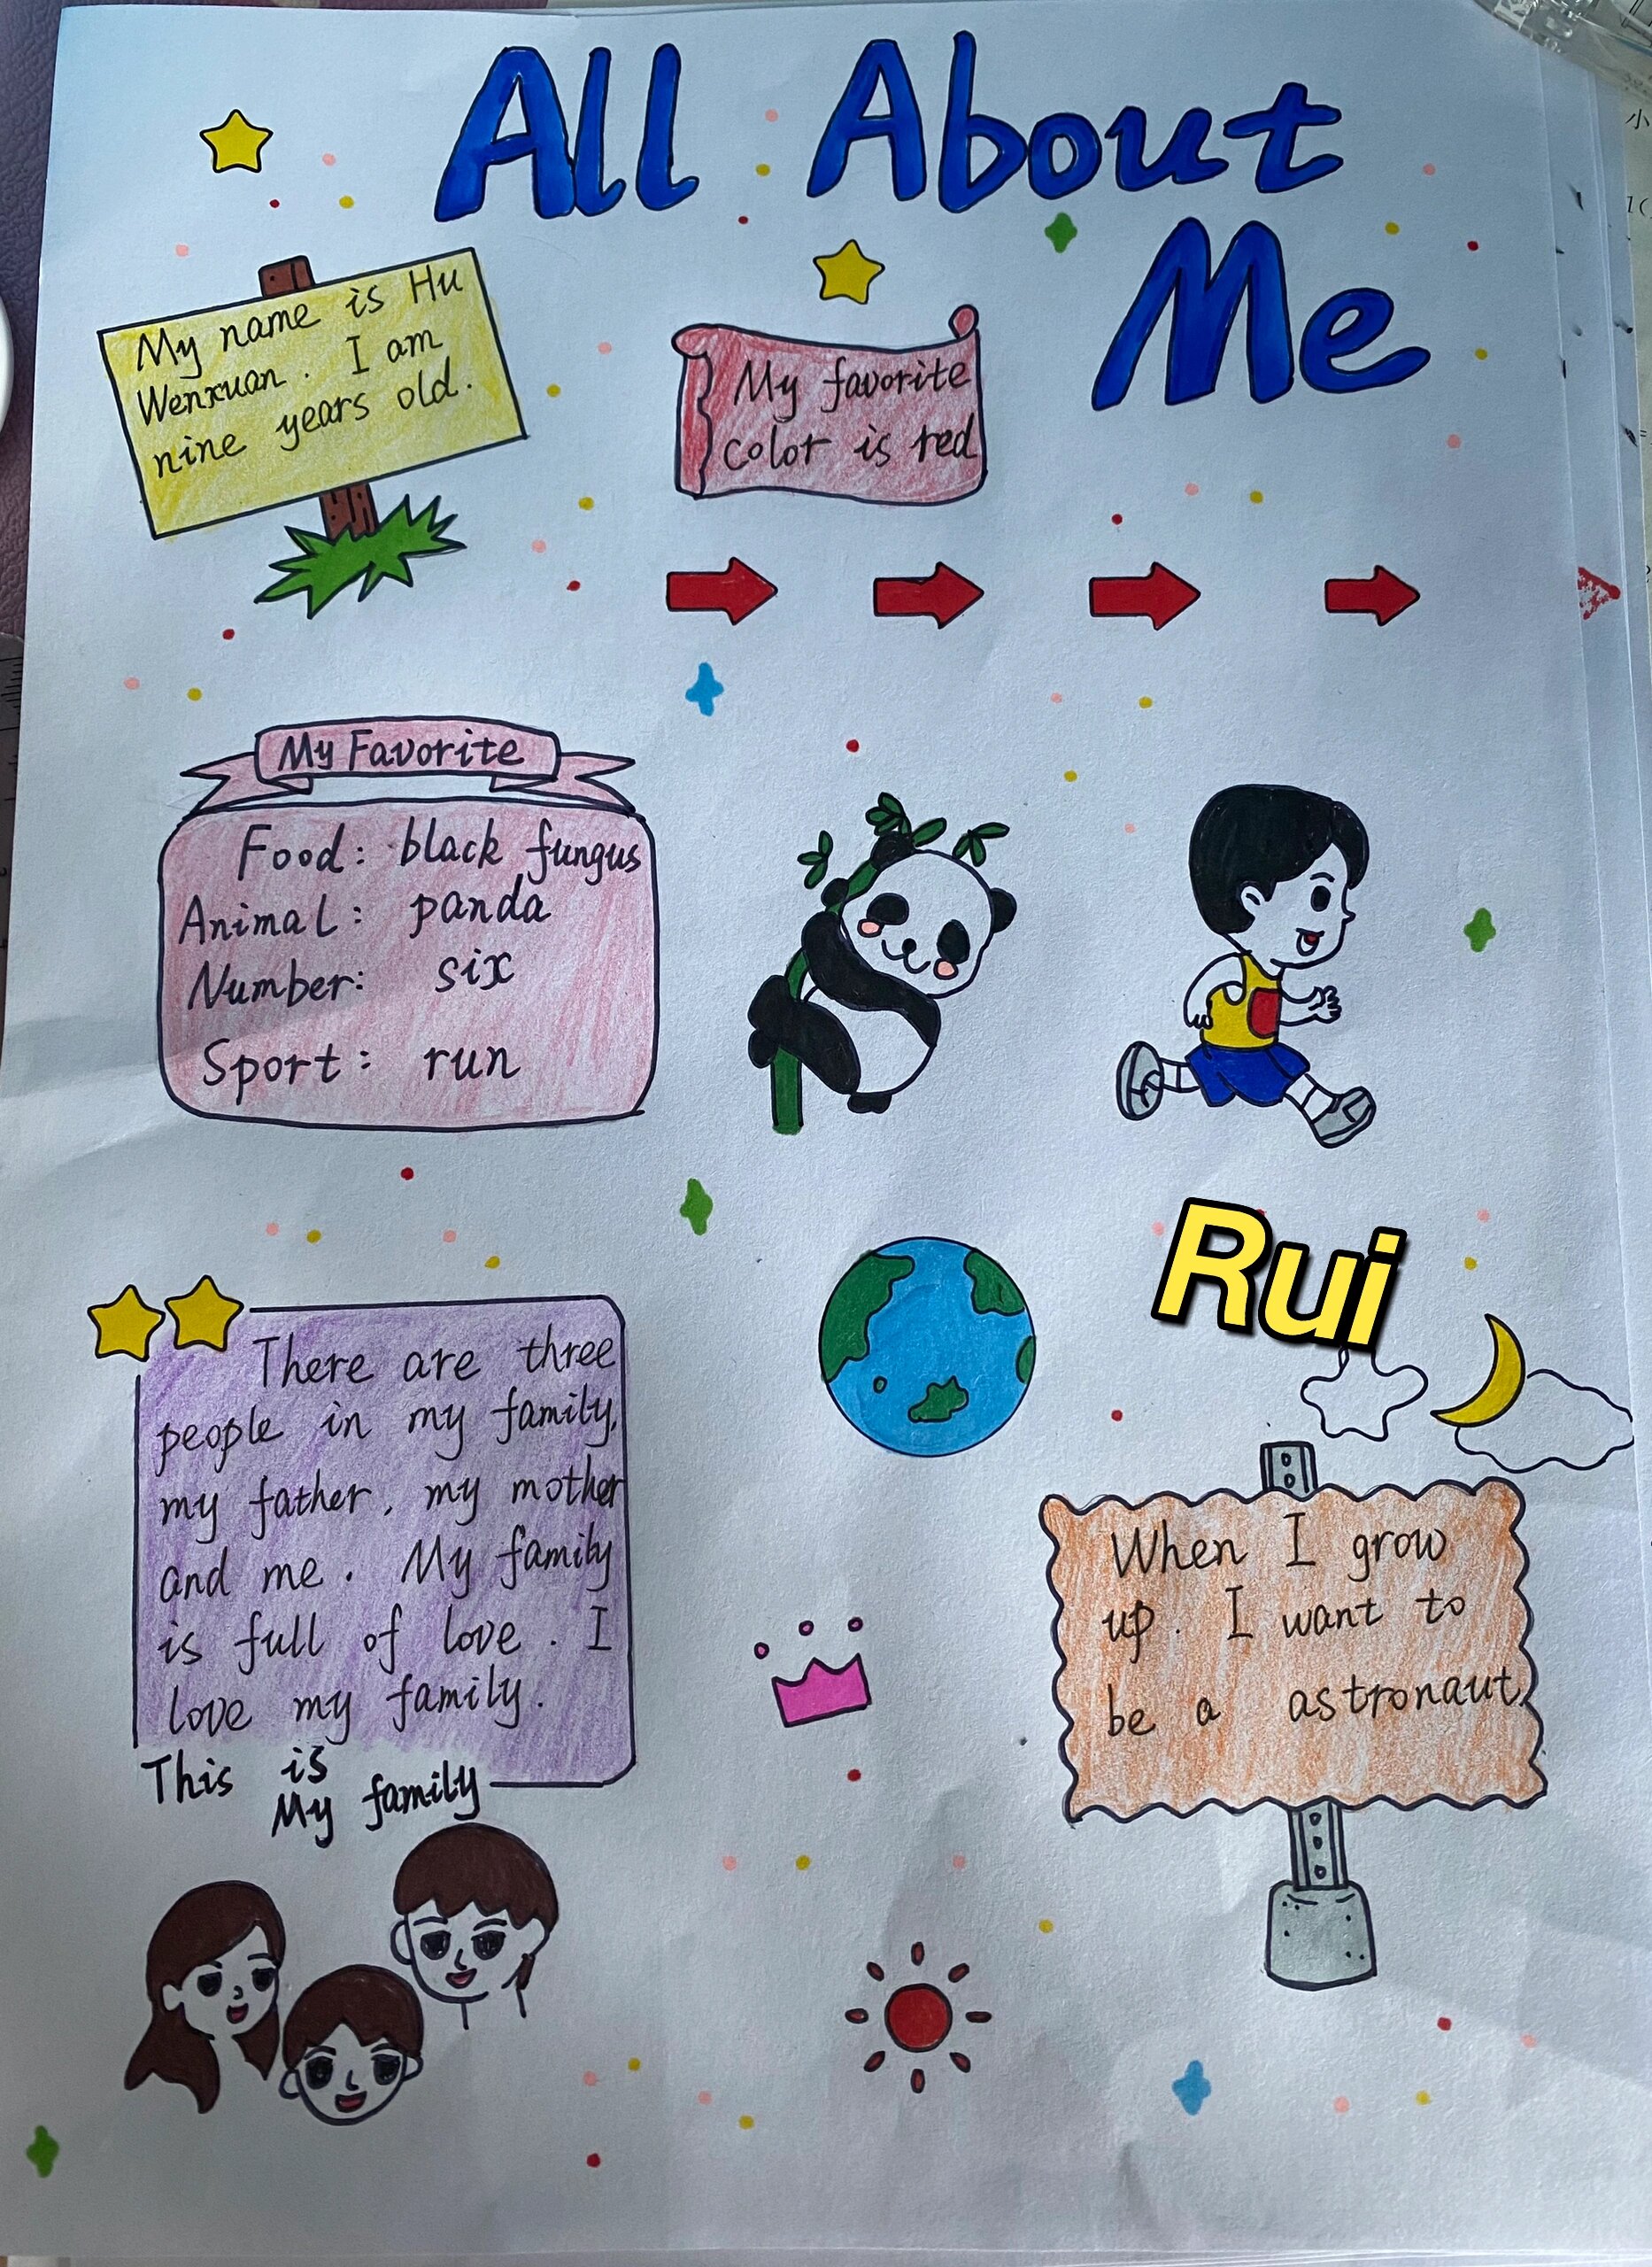 All About
Me
My name is Hu
Wenxuan. I am
nine years old.
My favorite
color is red
My Favorite
Food: black fungus
Animal: panda
Number: six
Sport: run
Rui
There are three
people in my family,
my father, my mother
and me. My family
is full of love. I
love my family.
This is
My family
When I grow
up. I want to
be a astronaut.